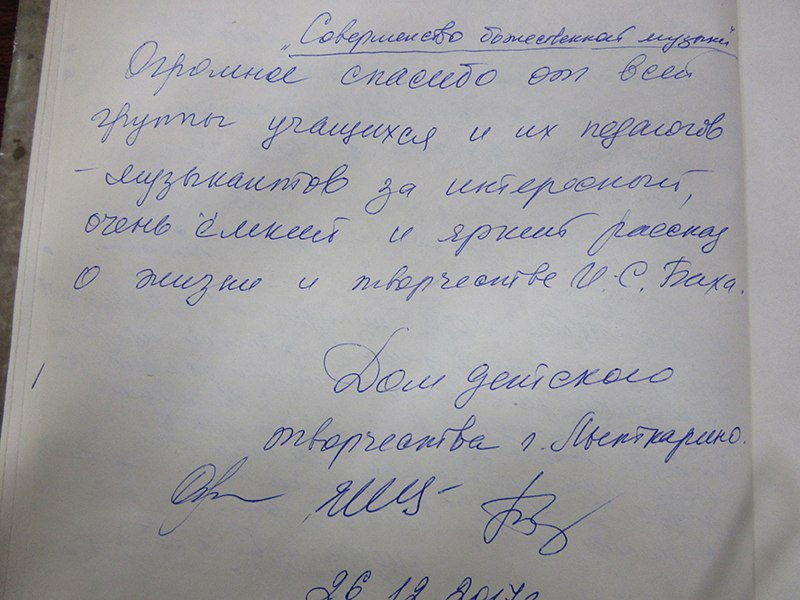 „Совершенство божественной музыки"
Огромное спасибо от всей
группы учащихся и их педагогов
- музыкантов за интересный,
очень ёмкий и яркий рассказ
о жизни и творчестве И.С. Баха.
Дом детского
творчества г. Лыткарино.
26.12.2017г